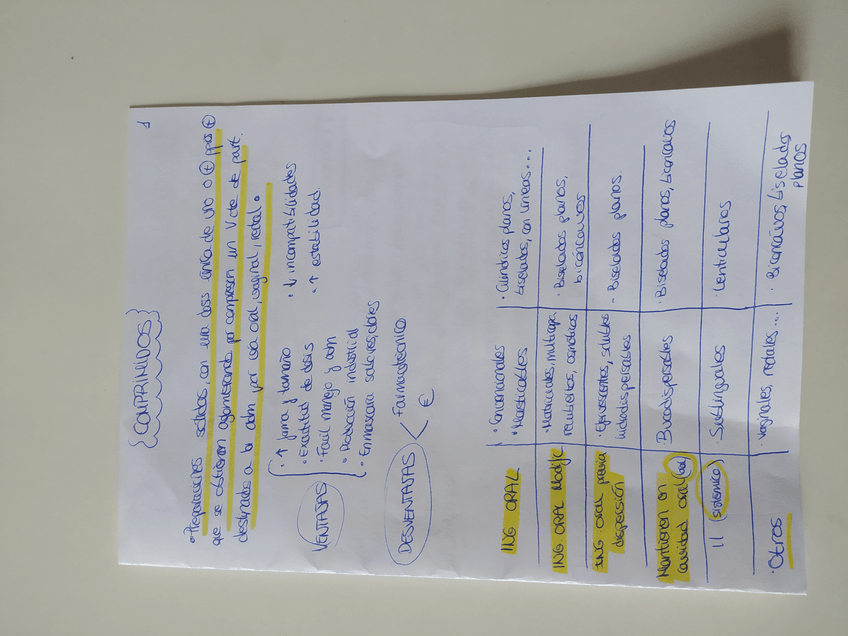 1
COMPRIMIDOS
• Preparaciones sólidas, con una dosis única de uno o ⊕ ppas ⊕
que se obtienen aglomerando por compresión un V cte de part.
destinados a la adm por vía oral, vaginal, rectal.
VENTAJAS
• ↑ forma y tamaño
• Exactitud de dosis
• Fácil manejo y adm
• Producción industrial
• Enmascara sabores, olores
• ↓ incompatibilidades
• ↑ estabilidad.
DESVENTAJAS < Farmacotécnico
€
ING ORAL
• Convencionales
• Masticables
• Cilíndricos planos,
biselados, con líneas...
ING ORAL Modif
• Matriciales, multicapa
recubiertos, osmóticos
• Biselados planos,
bicóncavos
ING oral previa
dispersión
• Efervescentes, solubles
hidrodispersables
- Biselados planos.
Mantienen en
cavidad oral (local)
Bucodispersables
• Biselados planos, bicóncavos
11 (sistémico)
• Sublinguales
• Lenticulares
• Otros
• Vaginales, rectales...
• Biconvexos, biselados
planos